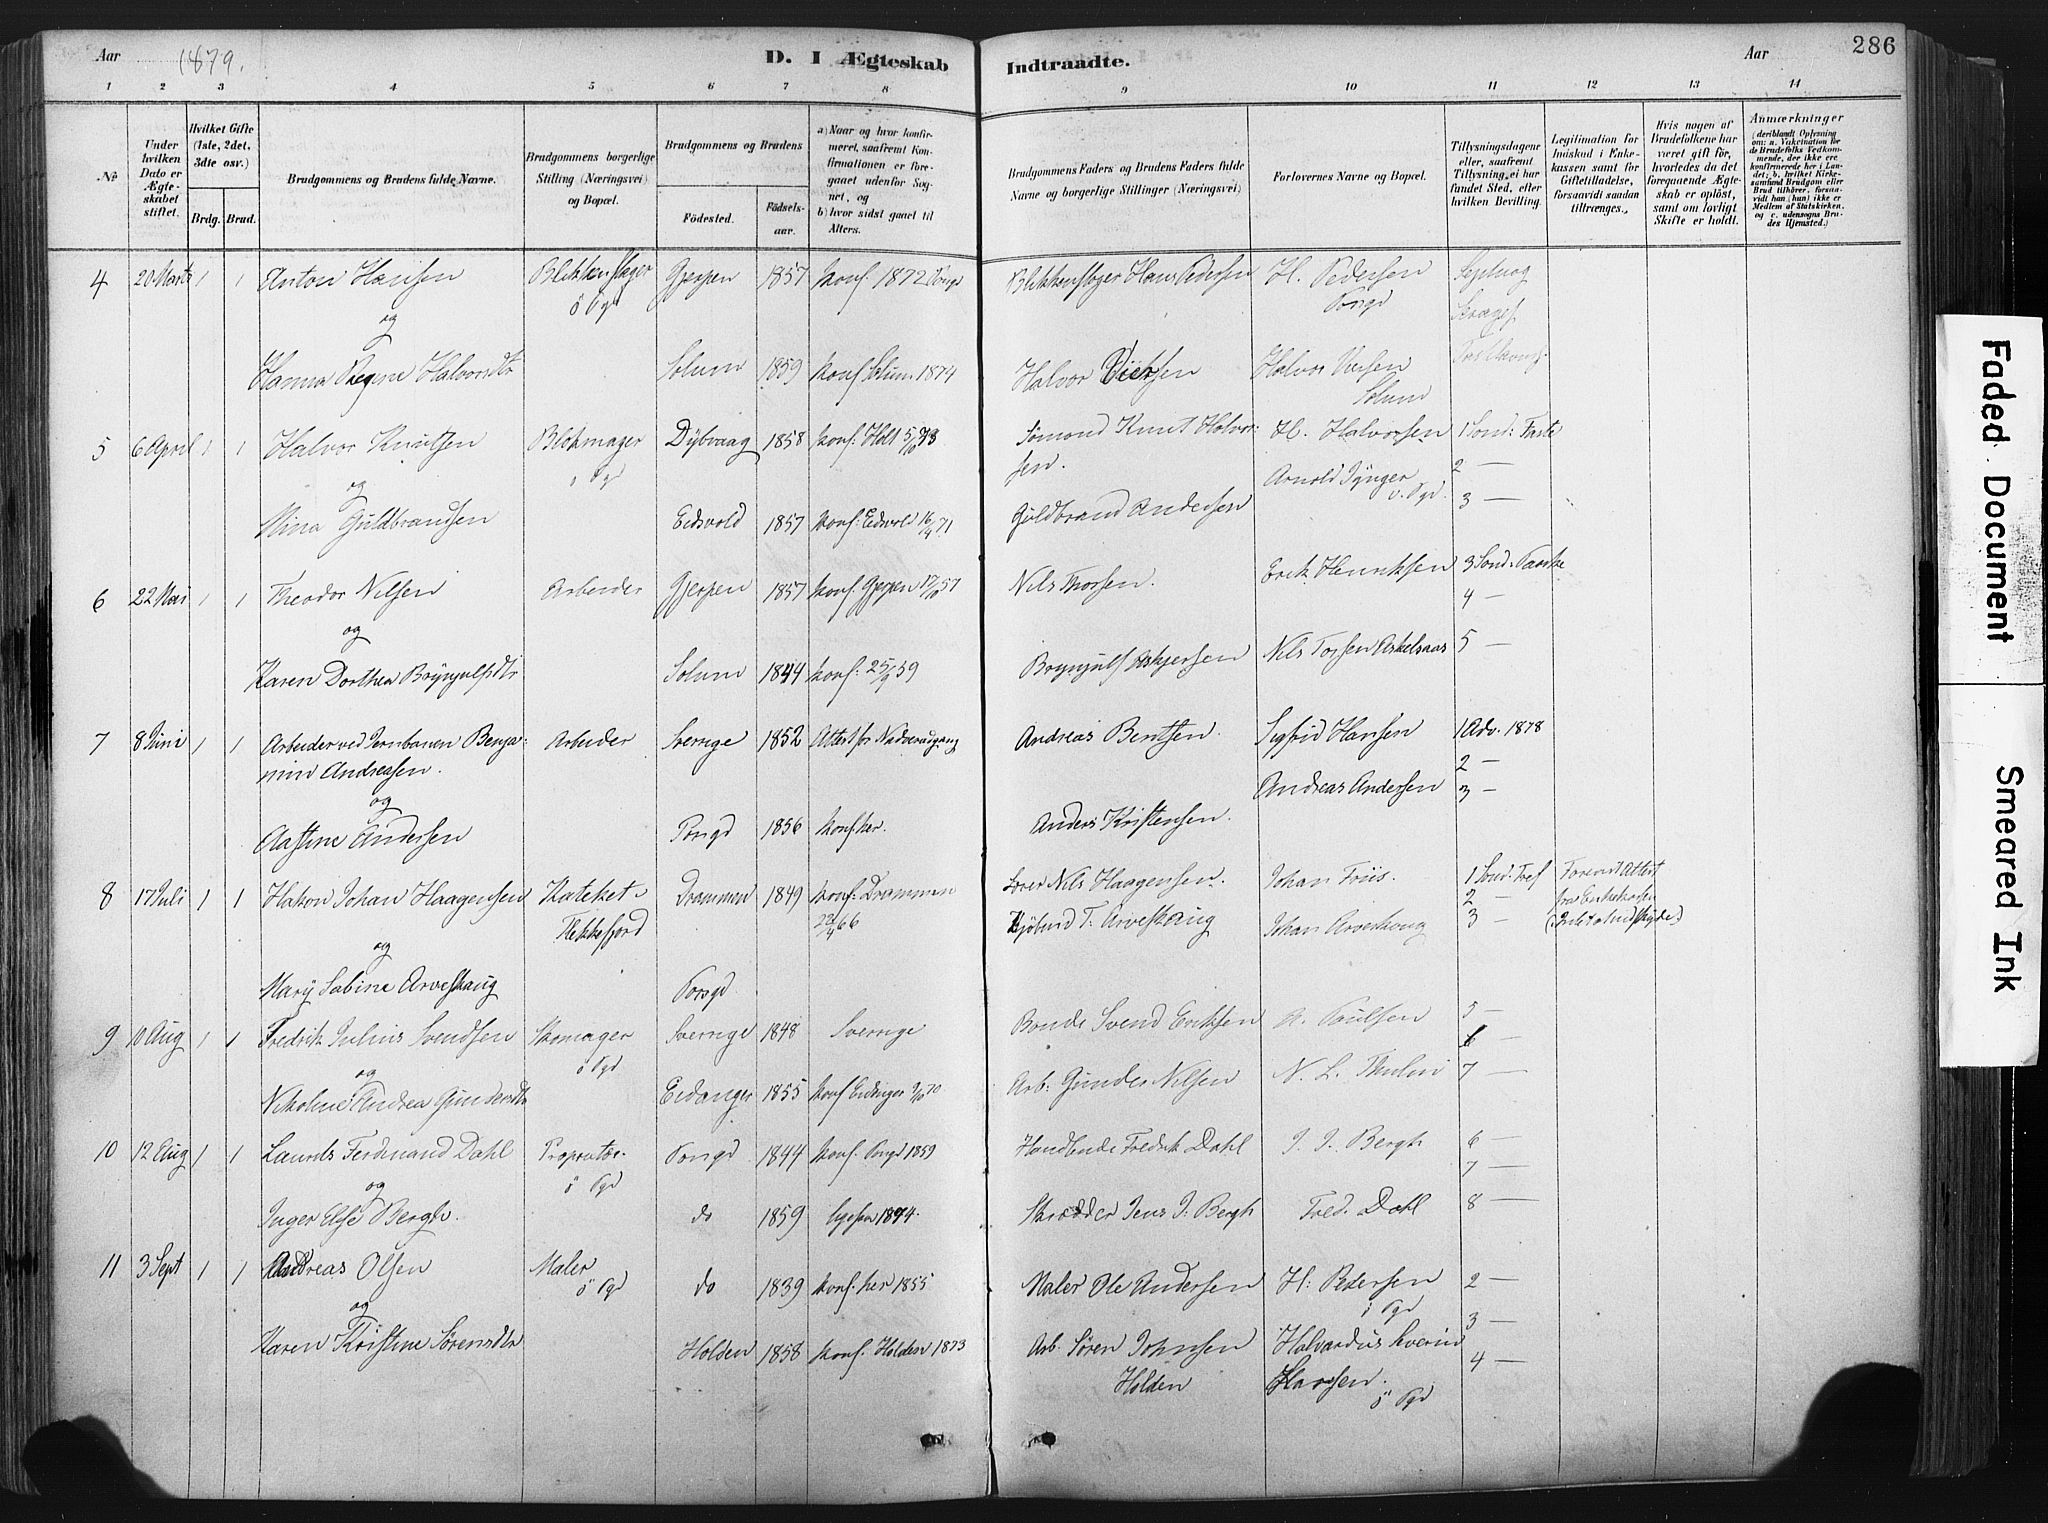 286
Aar 1879. D. I Ægteskab Indtraadte. Aar
1 2 3 4 5 6 7 8 9 10 11 12 13 14
Nº
Under hvilken Dato er Ægteskabet stiftet.
Hvilket Gifte (1ste, 2det, 3die osv.)
Brdg. Brud.
Brudgommens og Brudens fulde Navne.
Brudgommens borgerlige Stilling (Næringsvei) og Bopæl.
Brudgommens og Brudens
Fødested. Fødselsaar.
a) Naar og hvor konfirmeret, saafremt Konfirmationen er foregaaet udenfor Sognet, og
b) hvor sidst gaaet til Alters.
Brudgommens Faders og Brudens Faders fulde Navne og borgerlige Stillinger (Næringsvei)
Forlovernes Navne og Bopæl.
Tillysningsdagene eller, saafremt Tillysning ei har fundet Sted, efter hvilken Bevilling.
Legitimation for Indskud i Enkekassen samt for Giftetilladelse, forsaavidt saadan tiltrænges.
Hvis nogen af Brudefolkene har været gift før, hvorledes da det foregaaende Ægteskab er opløst, samt om lovligt Skifte er holdt.
Anmærkninger (deriblandt Oplysning om: a. Vakcination for de Brudefolks Vedkommende, der ikke ere konfirmerede her i Landet; b. hvilket Kirkesamfund Brudgom eller Brud tilhører, forsaavidt han (hun) ikke er Medlem af Statskirken, og c. udensogns Brudes Hjemsted.)
4 20 Marts 1 1 Anton Hansen Blikkenslager Gjerpen 1857 Konf. 1872 Blikkenslager Hans Pedersen H. Pedersen Septuag
og ö Pgd
Hanna Regine Halvorsdtr Solum 1859 Konf Solum 1874 Halvor Halvor
Solum
5 6 April 1 1 Halvor Knutsen Blokmager Dybvaag 1858 Konf. Holt Knut Halvor-
sen. H. Halvorsen 1 Sond: Faste
og Pgd Arnold 2 —
Mina Guldbrandsen Eidsvold 1857 Konf: Eidsvold 16/4 71 Guldbrand Andersen 3 —
6 22 Mai 1 1 Theodor Nilsen Arbeider Gjerpen 1857 Konf Gjerpen Nils Thorsen. Erik Henriksen 3 Sond. Faste
og 4 —
Karen Dorthea Brynjulfsdtr Solum 1844 Konf: 25/9 59 Brynjulf Asbjørsen Nils Torsen 5 —
7 8 Juni 1 1 Arbeider ved Jernbanen Benja- Arbeider Sverrige 1852 Attest for Nadveradgang Andreas Bentsen. Sigfrid Hansen 1 Adv. 1878
min Andreasen. 2 —
og Andreas Andersen 3 —
Aastine Andersen Porsgd 1856 Konf her. Anders Kristensen.
8 17 Juli 1 1 Hakon Johan Haagensen Kateket Drammen 1849 Konf. Drammen Nils Haagensen. Johan Friis. 1 Sond. Tref Attest
Flekkefjord 66 T. Arveskaug Johan Arveskoug 2 — fra Enkekassen
og 3 —
Mary Sabine Arveskaug Porsgd
9 10 Aug 1 1 Fredrik Julius Svendsen Skomager Sverrige 1848 Sverrige Bonde Svend Eriksen Paulsen 5 —
og ö Pgd 6 —
Nikoline Andrea Gundersdtr Eidanger 1855 Konf Eidanger 70 Arb: Gunder Nilsen N. L. Thulin 7 —
10 12 Aug 1 1 Laurits Ferdinand Dahl Proprietær Porsgd 1844 Konf. Porsgd 1859 Handlende Fredrik Dahl J. J. Bergh 6 —
og ö Pgd 7 —
Inger Else Bergh. do 1859 1874. Skrædder Jens J. Bergh Fred. Dahl 8 —
11 3 Sept 1 1 Andreas Olsen Maler do 1839 Konf. her 1855 Maler Ole Andersen H: Pedersen 2 —
og ö Pgd ö Pgd 3 —
Karen Kristine Sørensdtr Holden 1858 Konf. Holden 1873 Arb. Søren Johnsen Halvardus Severin 4 —
Holden Hansen.
ö Pgd
Faded Document
Smeared Ink